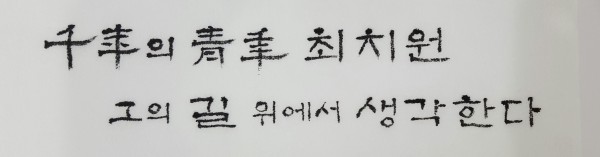 千年의 青年 최치원
그의 길 위에서 생각한다